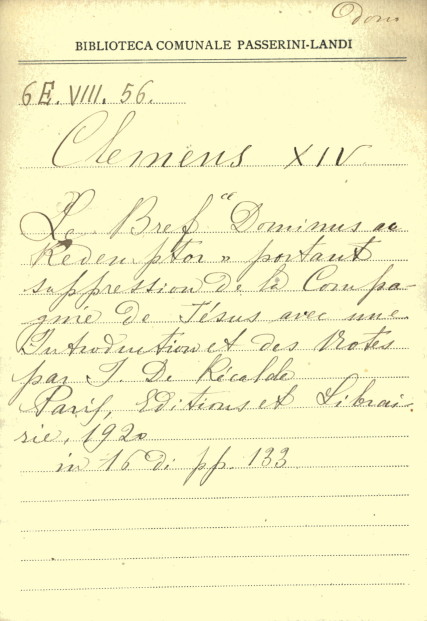 Dom.
BIBLIOTECA COMUNALE PASSERINI-LANDI
6E. VIII. 56.
Clemens XIV
Le Bref "Dominus ac
Redemptor" portant
suppression de la Compa-
gnie de Jésus avec une
Introduction et des Notes
par I. De Récalde
Paris, Editions et Librai-
rie, 1920
in 16 di pp. 133